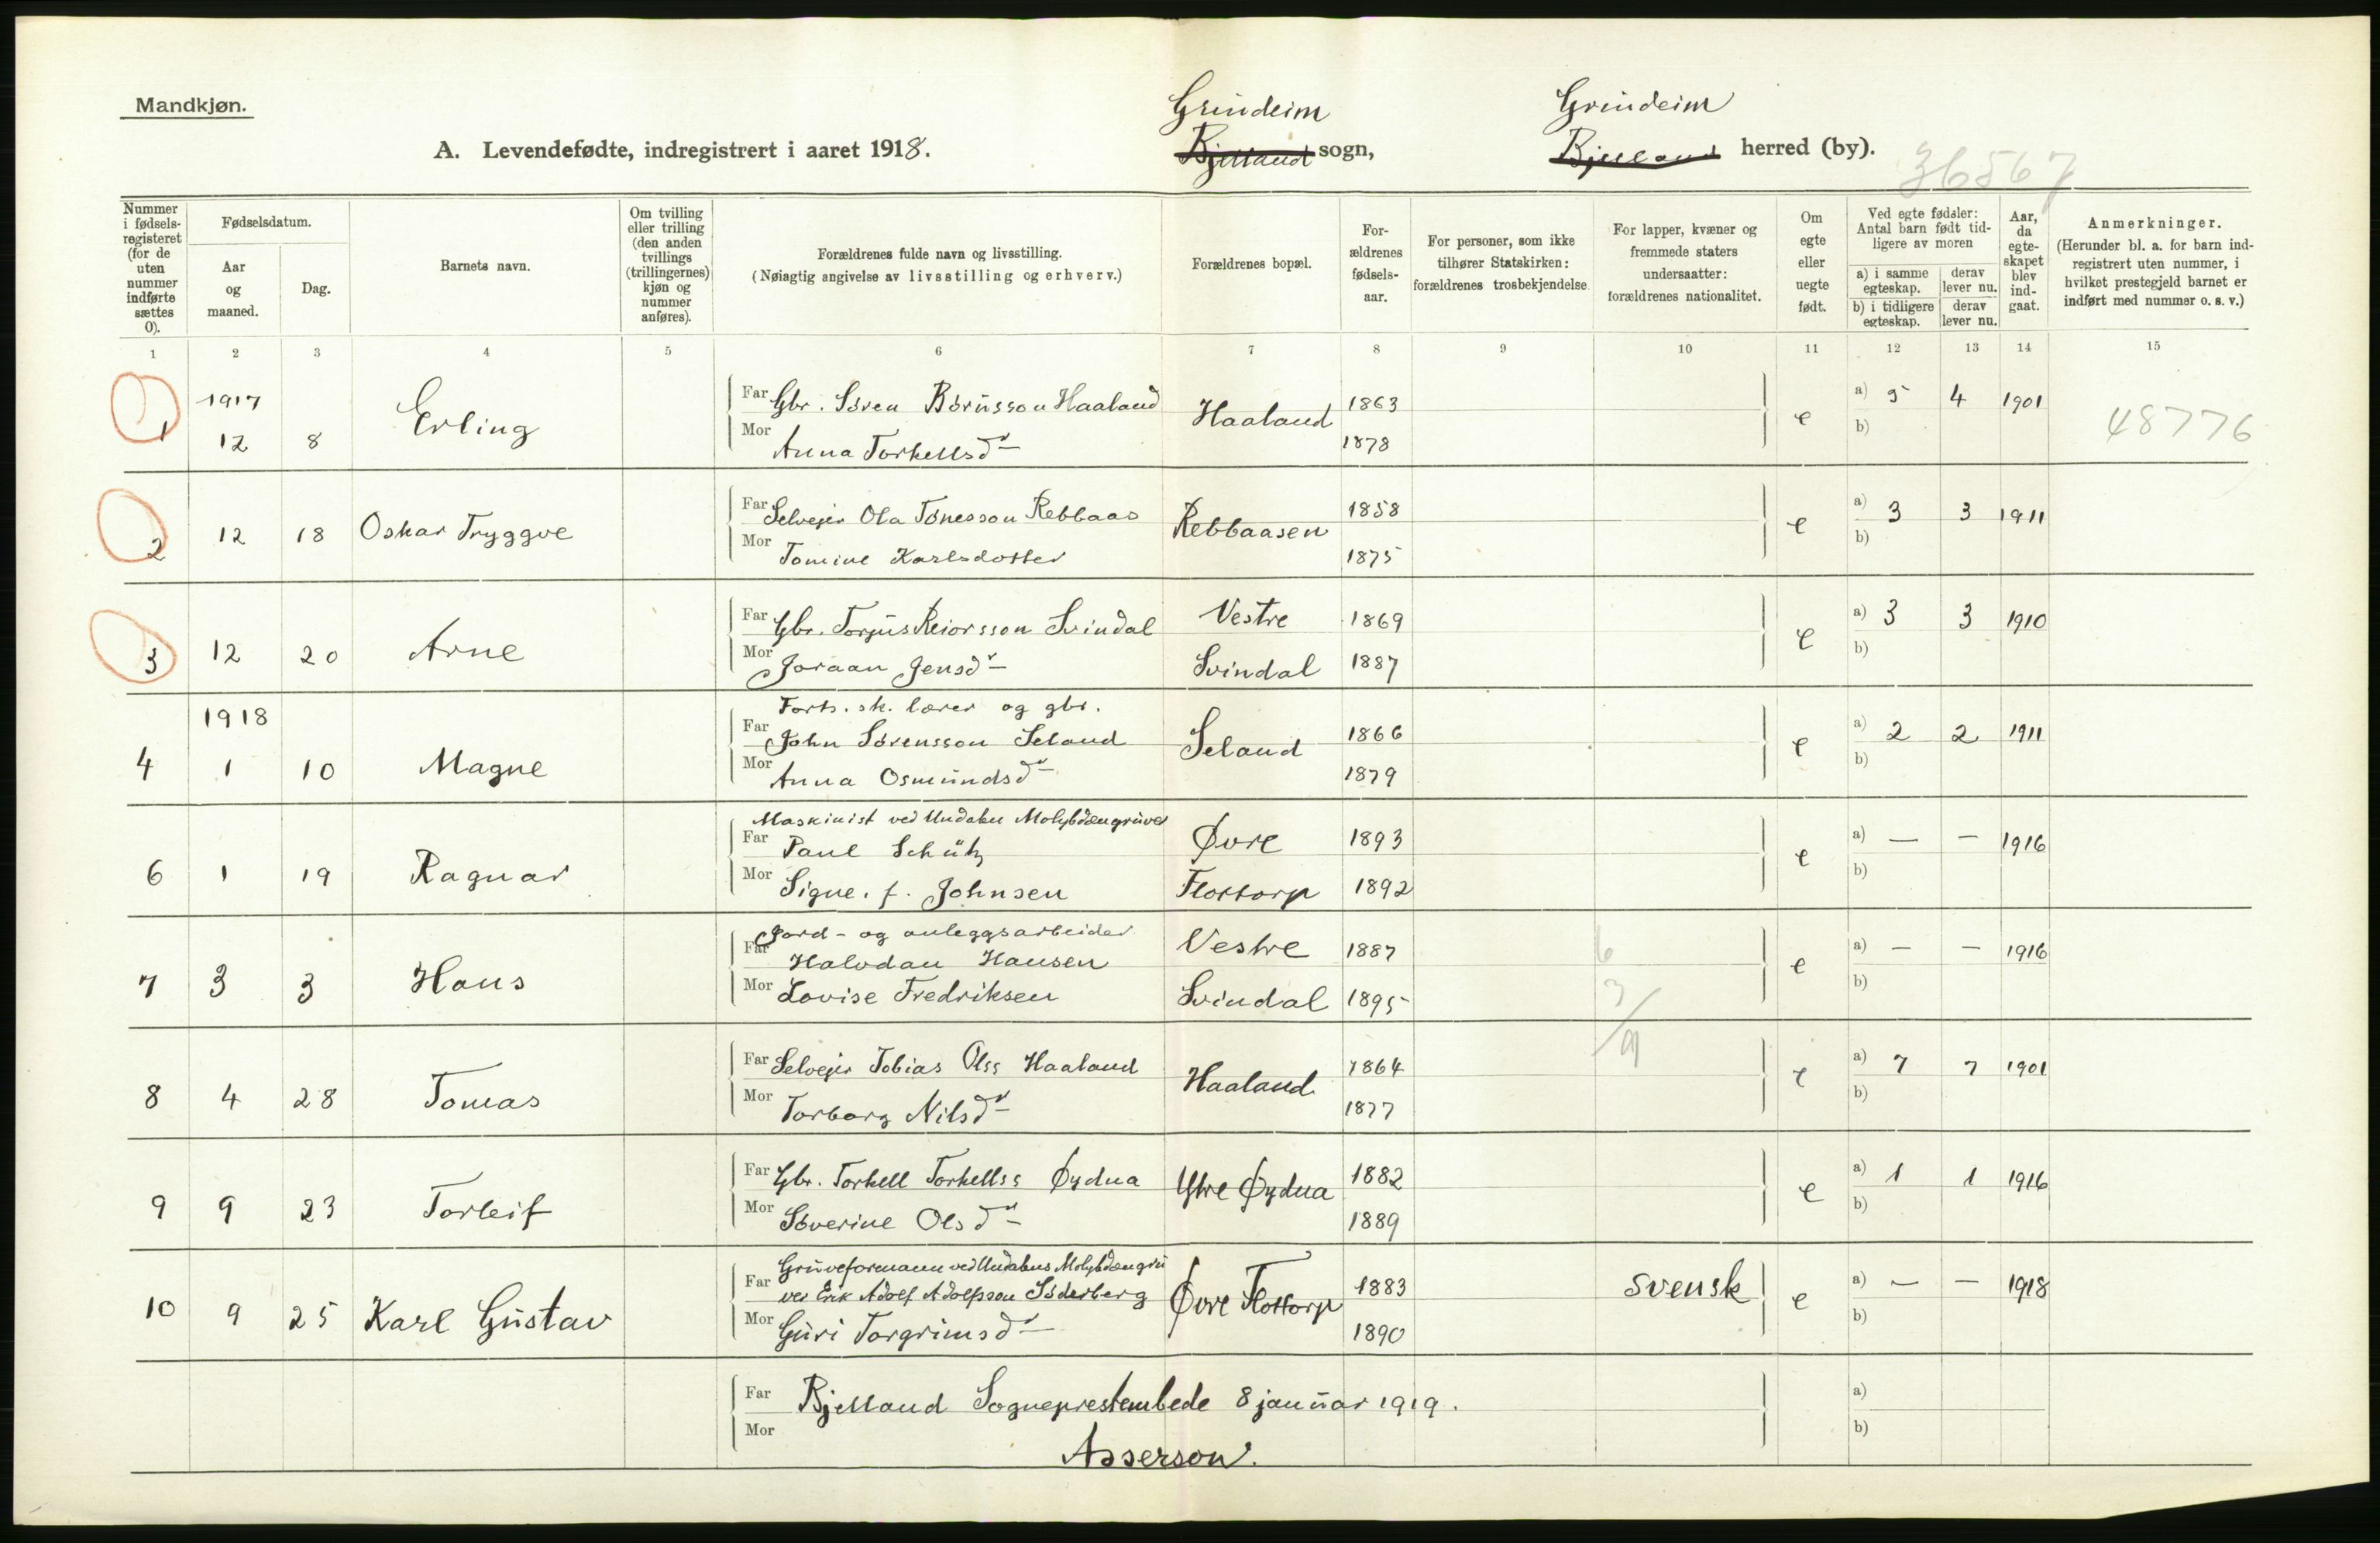 Mandkjøn.
Grindeim Grindeim
A. Levendefødte, indregistrert i aaret 1918. Bjelland sogn, Bjelland herred (by).
36567
Nummer i fødsels-registeret (for de uten nummer indførte sættes 0).
Fødselsdatum.
Aar og maaned.
Dag.
Barnets navn.
Om tvilling eller trilling (den anden tvillings (trillingernes) kjøn og nummer anføres).
Forældrenes fulde navn og livsstilling.
(Nøiagtig angivelse av livsstilling og erhverv.)
Forældrenes bopæl.
For-ældrenes fødsels-aar.
For personer, som ikke tilhører Statskirken: forældrenes trosbekjendelse.
For lapper, kvæner og fremmede staters undersaatter: forældrenes nationalitet.
Om egte eller uegte født.
Ved egte fødsler: Antal barn født tid-ligere av moren
a) i samme egteskap. derav lever nu.
b) i tidligere egteskap. derav lever nu.
Aar, da egte-skapet blev ind-gaat.
Anmerkninger.
(Herunder bl. a. for barn ind-registrert uten nummer, i hvilket prestegjeld barnet er indført med nummer o. s. v.)
1 2 3 4 5 6 7 8 9 10 11 12 13 14 15
1917
1 12 8 Erling
Far Gbr. Søren Børusson Haaland Haaland 1863 e a) 5 4 1901
Mor Anna Torkellsdr 1878 b)
48776
2 12 18 Oskar Tryggve
Far Selvejer Ola Tønesson Rebbaas Rebbaasen 1858 e a) 3 3 1911
Mor Tomine Karlsdotter 1875 b)
3 12 20 Arne
Far Gbr. Torjus Reiorsson Svindal Vestre 1869 e a) 3 3 1910
Mor Joraan Jensdr Svindal 1887 b)
1918
Forts. sk. lærer og gbr.
4 1 10 Magne
Far John Sørensson Seland Seland 1866 e a) 2 2 1911
Mor Anna Osmundsdr 1879 b)
Maskinist ved Undalen Molybdængruver
6 1 19 Ragnar
Far Paul Schütz Øvre 1893 e a) — — 1916
Mor Signe. f. Johnsen Flottorp 1892 b)
Jord- og anleggsarbeider
7 3 3 Hans
Far Halvdan Hansen Vestre 1887 e a) — — 1916
Mor Lovise Fredriksen Svindal 1895 b)
8 4 28 Tomas
Far Selvejer Tobias Olss Haaland Haaland 1864 e a) 7 7 1901
Mor Torborg Nilsdr 1877 b)
9 9 23 Torleif
Far Gbr. Torkell Torkellss Øydna Ytre Øydna 1882 e a) 1 1 1916
Mor Søverine Olsdr 1889 b)
Gruveformann ved Undalens Molybdængru
10 9 25 Karl Gustav
Far ver Erik Adolf Adolfsson Søderberg Øvre Flottorp 1883 svensk e a) — — 1918
Mor Guri Torgrimsdr 1890 b)
Far Bjelland Sogneprestembede 8 januar 1919. a)
Mor b)
Asserson.